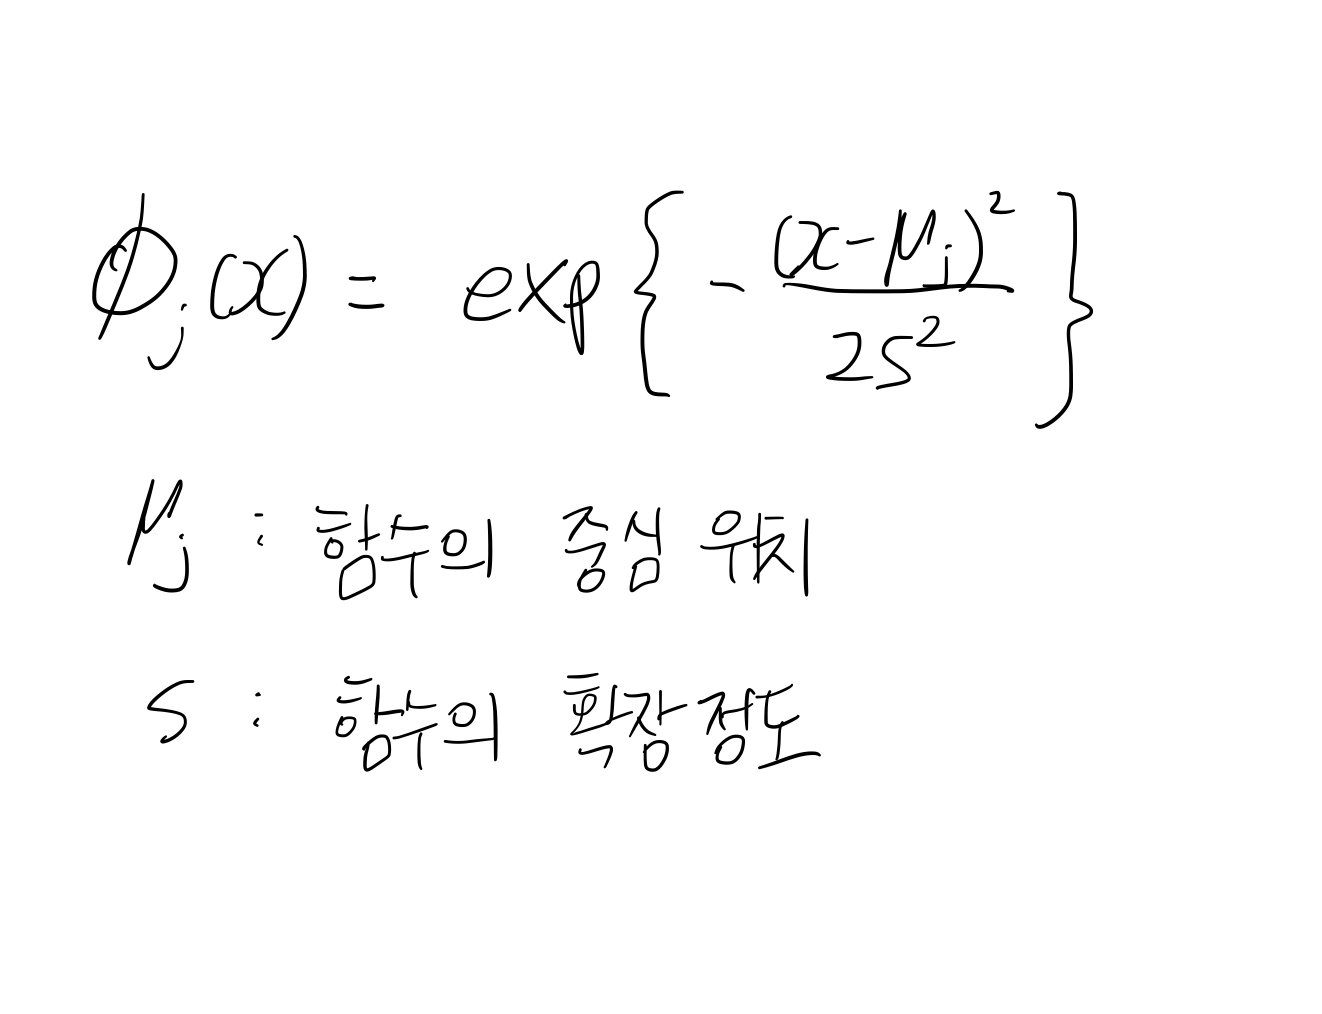 ϕ_j(x) = exp{ - (x-μ_j)² / 2s² }
μ_j : 함수의 중심 위치
s : 함수의 확장정도